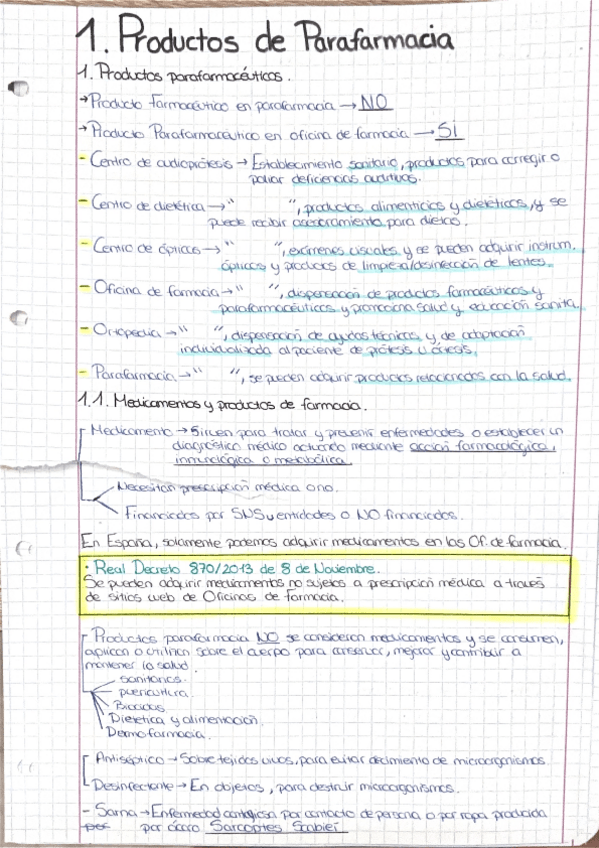 1. Productos de Parafarmacia
1. Productos parafarmacéuticos.
→ Producto Farmacéutico en parafarmacia → NO
→ Producto Parafarmacéutico en oficina de farmacia → SI
- Centro de audioprótesis → Establecimiento sanitario, productos para corregir o
paliar deficiencias auditivas.
- Centro de dietética → " ", productos alimenticios y dietéticos, y se
puede recibir asesoramiento para dietas.
- Centro de ópticas → " ", exámenes visuales y se pueden adquirir instrum.
ópticos y productos de limpieza/desinfección de lentes.
- Oficina de farmacia → " ", dispensación de productos farmacéuticos y
parafarmacéuticos y promociona salud y educación sanita.
- Ortopedia → " ", dispensación de ayudas técnicas y de adaptación
individualizada al paciente de prótesis u órtesis.
- Parafarmacia → " ", se pueden adquirir productos relacionados con la salud.
1.1. Medicamentos y productos de farmacia.
Medicamento → Sirven para tratar y prevenir enfermedades o establecer un
diagnóstico médico actuando mediante acción farmacológica,
inmunológica o metabólica.
Necesitan prescripción médica o no.
Financiados por SNS u entidades o NO financiados.
En España, solamente podemos adquirir medicamentos en las Of. de farmacia.
· Real Decreto 870/2013 de 8 de Noviembre.
Se pueden adquirir medicamentos no sujetos a prescripción médica a través
de sitios web de Oficinas de farmacia.
Productos parafarmacia NO se consideran medicamentos y se consumen,
aplican o utilizan sobre el cuerpo para conservar, mejorar y contribuir a
mantener la salud.
sanitarios.
puericultura.
Biocidas
Dietetica y alimentación.
Dermofarmacia.
Antiséptico → Sobre tejidos vivos, para evitar crecimiento de microorganismos
Desinfectante → En objetos, para destruir microorganismos.
- Sarna → Enfermedad contagiosa por contacto de persona o por ropa producida
por ácaro Sarcoptes Scabiei